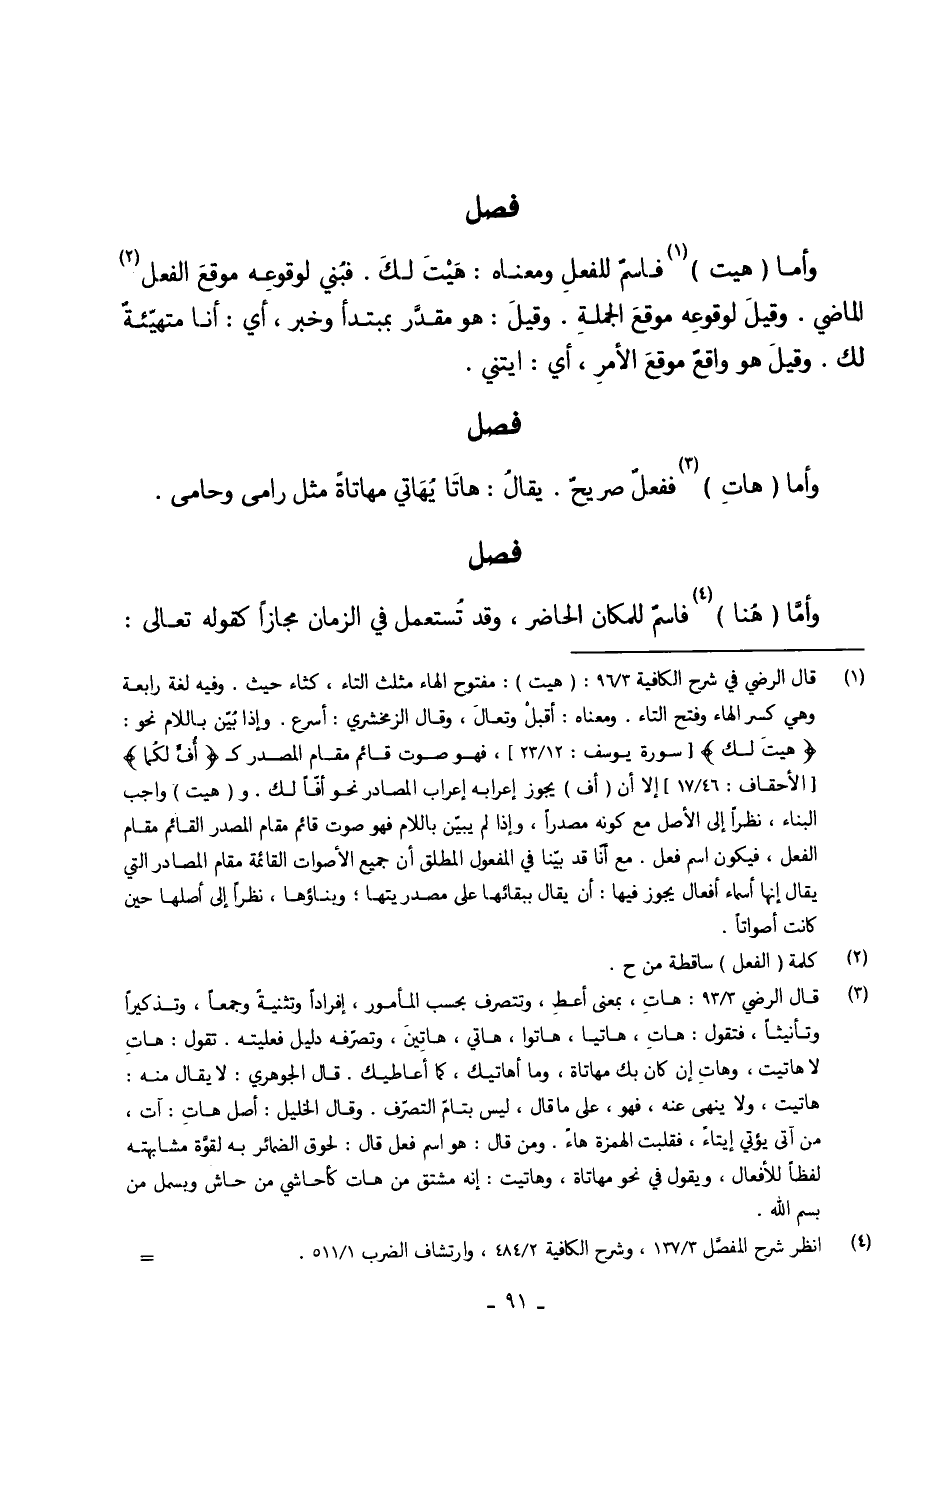 فصل
وأما ( هيت )(١) فاسمٌ للفعلِ ومعناه : هَيْتَ لكَ . فبُني لوقوعِه موقعَ الفعل(٢)
الماضي . وقيلَ لوقوعِه موقعَ الجملةِ . وقيلَ : هو مقدَّر بمبتدأ وخبر ، أي : أنا متهيّئةٌ
لك . وقيلَ هو واقعٌ موقعَ الأمرِ ، أي : ايتني .
فصل
وأما ( هاتِ )(٣) ففعلٌ صريحٌ . يقالُ : هاتَا يُهَاتي مهاتاةً مثل رامى وحامى .
فصل
وأمَّا ( هُنا )(٤) فاسمٌ للمكان الحاضر ، وقد تُستعمل في الزمان مجازاً كقوله تعالى :
(١) قال الرضي في شرح الكافية ٩٦/٣ : ( هيت ) : مفتوح الهاء مثلث التاء ، كثاء حيث . وفيه لغة رابعة
وهي كسر الهاء وفتح التاء . ومعناه : أقبلْ وتعالَ ، وقال الزمخشري : أسرع . وإذا بُيّن باللام نحو :
﴿ هيتَ لك ﴾ [ سورة يوسف : ٢٣/١٢ ] ، فهو صوت قائم مقام المصدر كـ ﴿ أُفٍّ لكُما ﴾
[ الأحقاف : ١٧/٤٦ ] إلا أن ( أف ) يجوز إعرابه إعراب المصادر نحو أفّاً لك . و ( هيت ) واجب
البناء ، نظراً إلى الأصل مع كونه مصدراً ، وإذا لم يبيّن باللام فهو صوت قائم مقام المصدر القائم مقام
الفعل ، فيكون اسم فعل . مع أنّا قد بيّنا في المفعول المطلق أن جميع الأصوات القائمة مقام المصادر التي
يقال إنها أسماء أفعال يجوز فيها : أن يقال ببقائها على مصدريتها ؛ وبناؤها ، نظراً إلى أصلها حين
كانت أصواتاً .
(٢) كلمة ( الفعل ) ساقطة من ح .
(٣) قال الرضي ٩٣/٣ : هاتِ ، بمعنى أعطِ ، وتتصرف بحسب المأمور ، إفراداً وتثنيةً وجمعاً ، وتذكيراً
وتأنيثاً ، فتقول : هاتِ ، هاتيا ، هاتوا ، هاتي ، هاتِينَ ، وتصرّفه دليل فعليته . تقول : هاتِ
لا هاتيت ، وهاتِ إن كان بك مهاتاة ، وما أهاتيك ، كما أعاطيك . قال الجوهري : لا يقال منه :
هاتيت ، ولا ينهى عنه ، فهو ، على ما قال ، ليس بتامّ التصرّف . وقال الخليل : أصل هاتِ : آت ،
من آتى يؤتي إيتاءً ، فقلبت الهمزة هاءً . ومن قال : هو اسم فعل قال : لحوق الضمائر به لقوّة مشابهته
لفظاً للأفعال ، ويقول في نحو مهاتاة ، وهاتيت : إنه مشتق من هات كأحاشي من حاش وبسمل من
بسم الله .
(٤) انظر شرح المفصَّل ١٣٧/٣ ، وشرح الكافية ٤٨٤/٢ ، وارتشاف الضرب ٥١١/١ . =
- ٩١ -